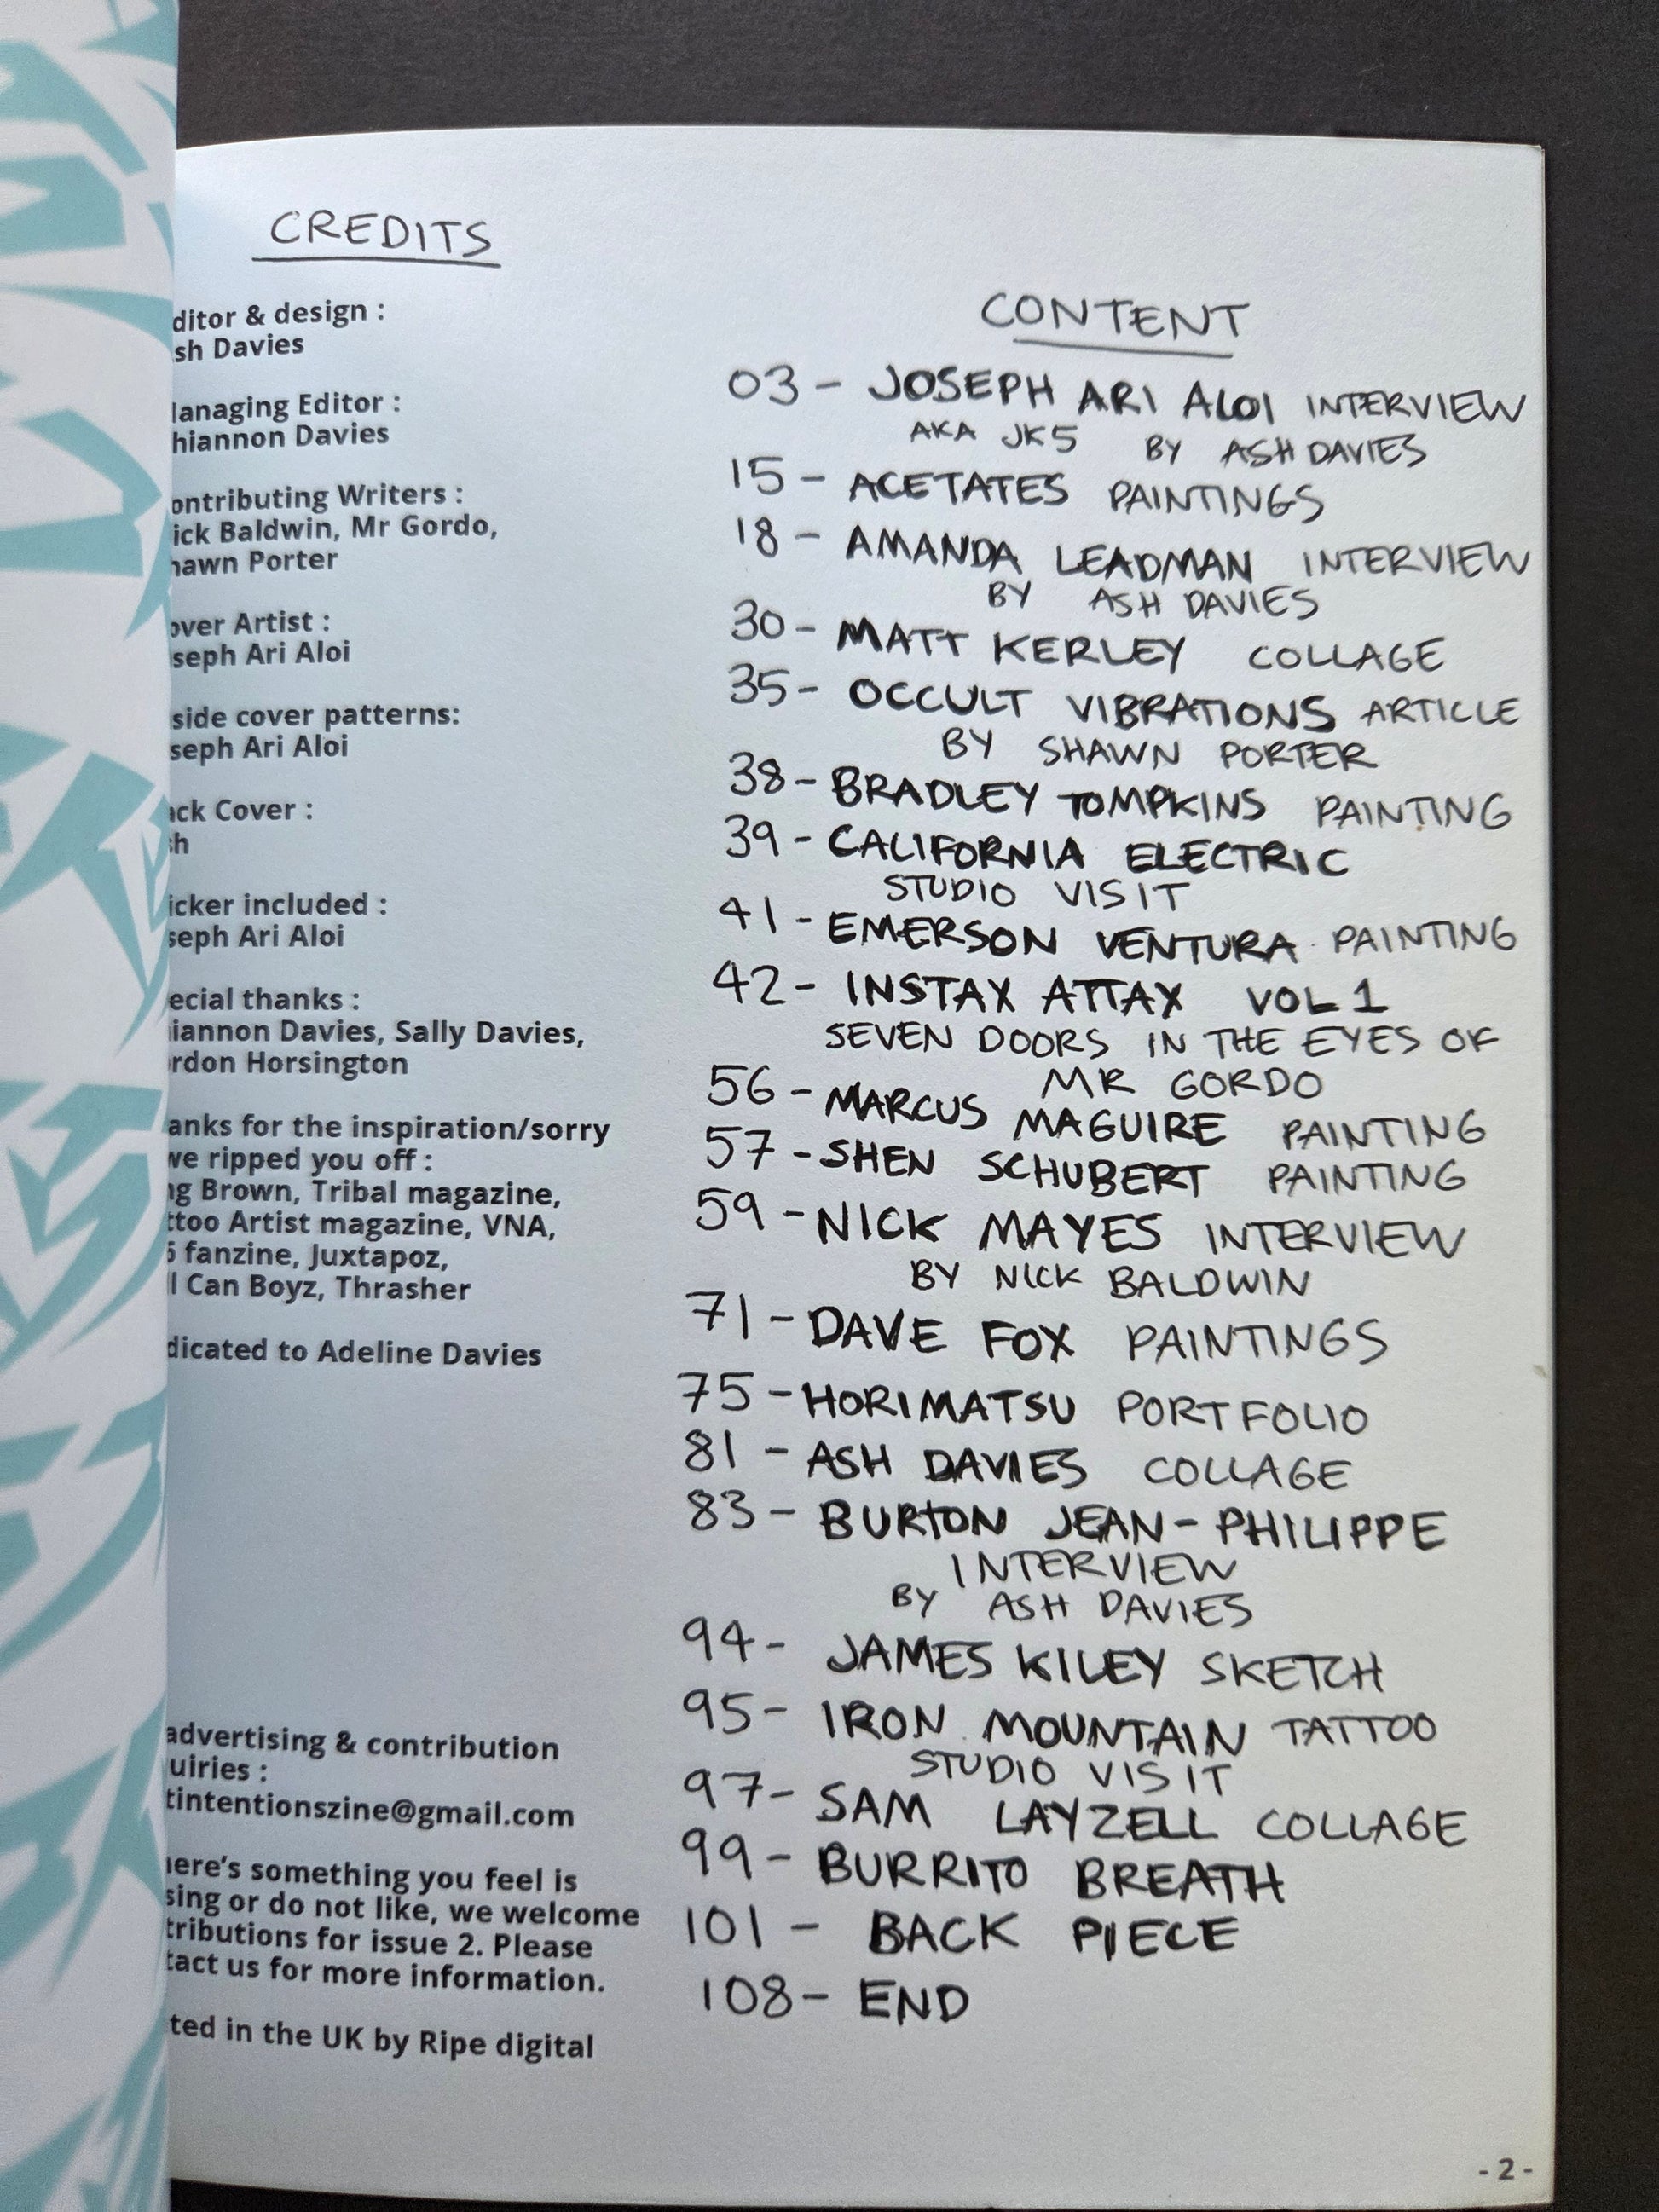 CREDITS
ditor & design :
sh Davies
anaging Editor :
hiannon Davies
ontributing Writers :
ick Baldwin, Mr Gordo,
hawn Porter
over Artist :
seph Ari Aloi
side cover patterns:
seph Ari Aloi
ack Cover :
sh
icker included :
seph Ari Aloi
ecial thanks :
iannon Davies, Sally Davies,
rdon Horsington
anks for the inspiration/sorry
we ripped you off :
ng Brown, Tribal magazine,
ttoo Artist magazine, VNA,
fanzine, Juxtapoz,
l Can Boyz, Thrasher
dicated to Adeline Davies
advertising & contribution
uiries :
tintentionszine@gmail.com
here's something you feel is
sing or do not like, we welcome
tributions for issue 2. Please
tact us for more information.
ted in the UK by Ripe digital
CONTENT
03 - JOSEPH ARI ALOI INTERVIEW
AKA JK5 BY ASH DAVIES
15 - ACETATES PAINTINGS
18 - AMANDA LEADMAN INTERVIEW
BY ASH DAVIES
30 - MATT KERLEY COLLAGE
35 - OCCULT VIBRATIONS ARTICLE
BY SHAWN PORTER
38 - BRADLEY TOMPKINS PAINTING
39 - CALIFORNIA ELECTRIC
STUDIO VISIT
41 - EMERSON VENTURA PAINTING
42 - INSTAX ATTAX VOL 1
SEVEN DOORS IN THE EYES OF
MR GORDO
56 - MARCUS MAGUIRE PAINTING
57 - SHEN SCHUBERT PAINTING
59 - NICK MAYES INTERVIEW
BY NICK BALDWIN
71 - DAVE FOX PAINTINGS
75 - HORIMATSU PORTFOLIO
81 - ASH DAVIES COLLAGE
83 - BURTON JEAN-PHILIPPE
INTERVIEW
BY ASH DAVIES
94 - JAMES KILEY SKETCH
95 - IRON MOUNTAIN TATTOO
STUDIO VISIT
97 - SAM LAYZELL COLLAGE
99 - BURRITO BREATH
101 - BACK PIECE
108 - END
- 2 -